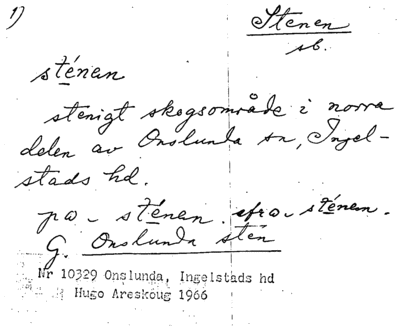 1)
Stenen
sb.
sténen
stenigt skogsområde i norra
delen av Onslunda sn, Ingel-
stads hd.
pa - sténen. ifra - sténen.
G. Onslunda sten
Nr 10329 Onslunda, Ingelstads hd
Hugo Areskoug 1966